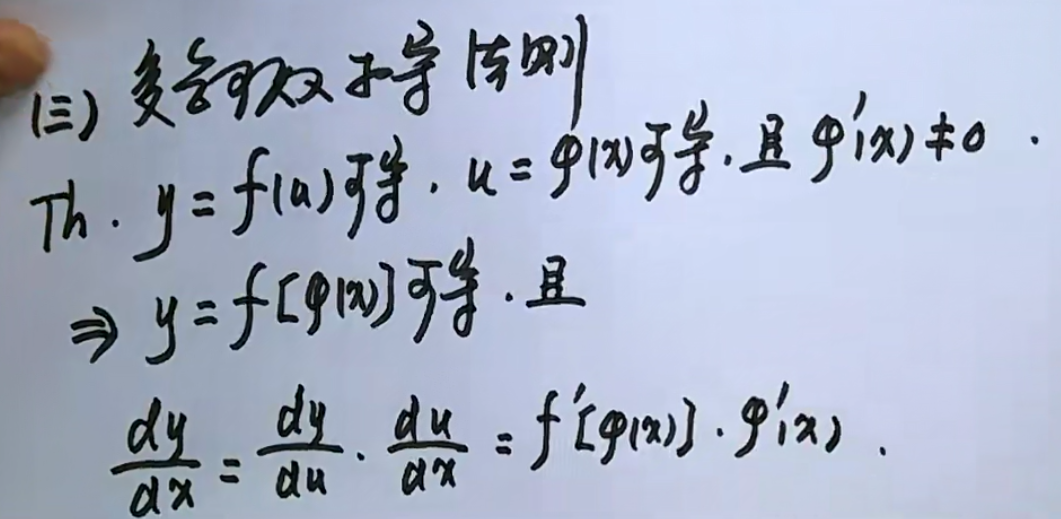 (三) 复合函数求导法则
Th. y = f(u)可导, u = φ(x)可导, 且 φ'(x) ≠ 0.
⇒ y = f[φ(x)]可导, 且
dy/dx = dy/du · du/dx = f'[φ(x)] · φ'(x).